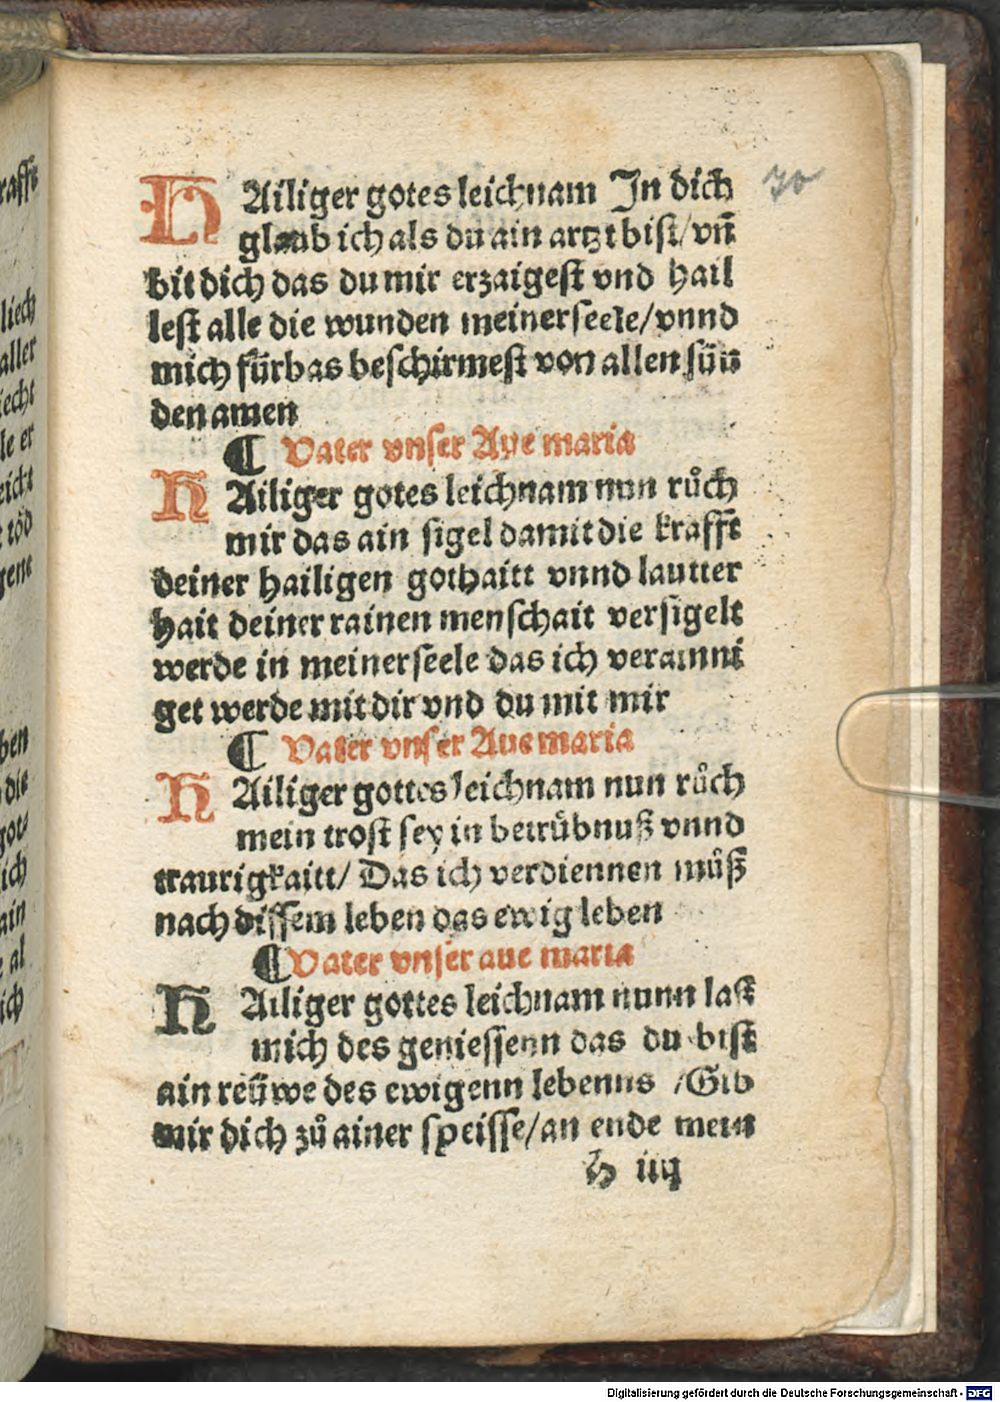 70
HAiliger gotes leichnam In dich
glaub ich als du ain artzt bist/ vn̄
bit dich das du mir erzaigest vnd hail
lest alle die wunden meiner seele/ vnnd
mich fürbas beschirmest von allen sün
den amen
¶ Vater vnser Aue maria
HAiliger gotes leichnam nun růch
mir das ain sigel damit die krafft
deiner hailigen gothaitt vnnd lautter
hait deiner rainen menschait versigelt
werde in meiner seele das ich verainni
get werde mit dir vnd du mit mir
¶ Vater vnser Aue maria
HAiliger gottes leichnam nun růch
mein trost sey in betrůbnuß vnnd
traurigkaitt/ Das ich verdiennen můß
nach dissem leben das ewig leben
¶ Vater vnser aue maria
HAiliger gottes leichnam nunn last
mich des geniessenn das du bist
ain reüwe des ewigenn lebenns /Gib
mir dich zů ainer speisse/ an ende mein
h iiij
rafft
liech
aller
iecht
le er
eicht
töd
gene
ben
die
got/
ich
ain
al
ich
Digitalisierung gefördert durch die Deutsche Forschungsgemeinschaft - DFG